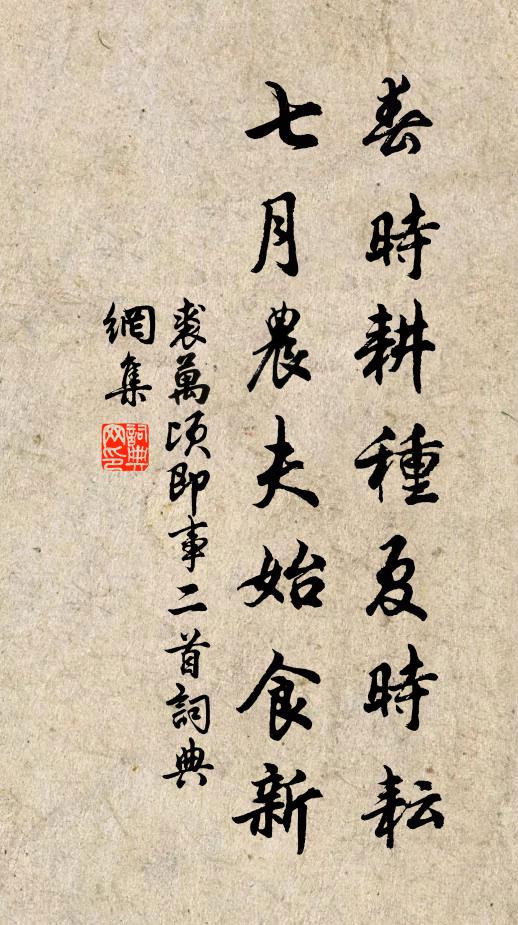 春時耕種夏時耘
七月農夫始食新
裘萬頃即事二首詞典
網集
詞典
网印